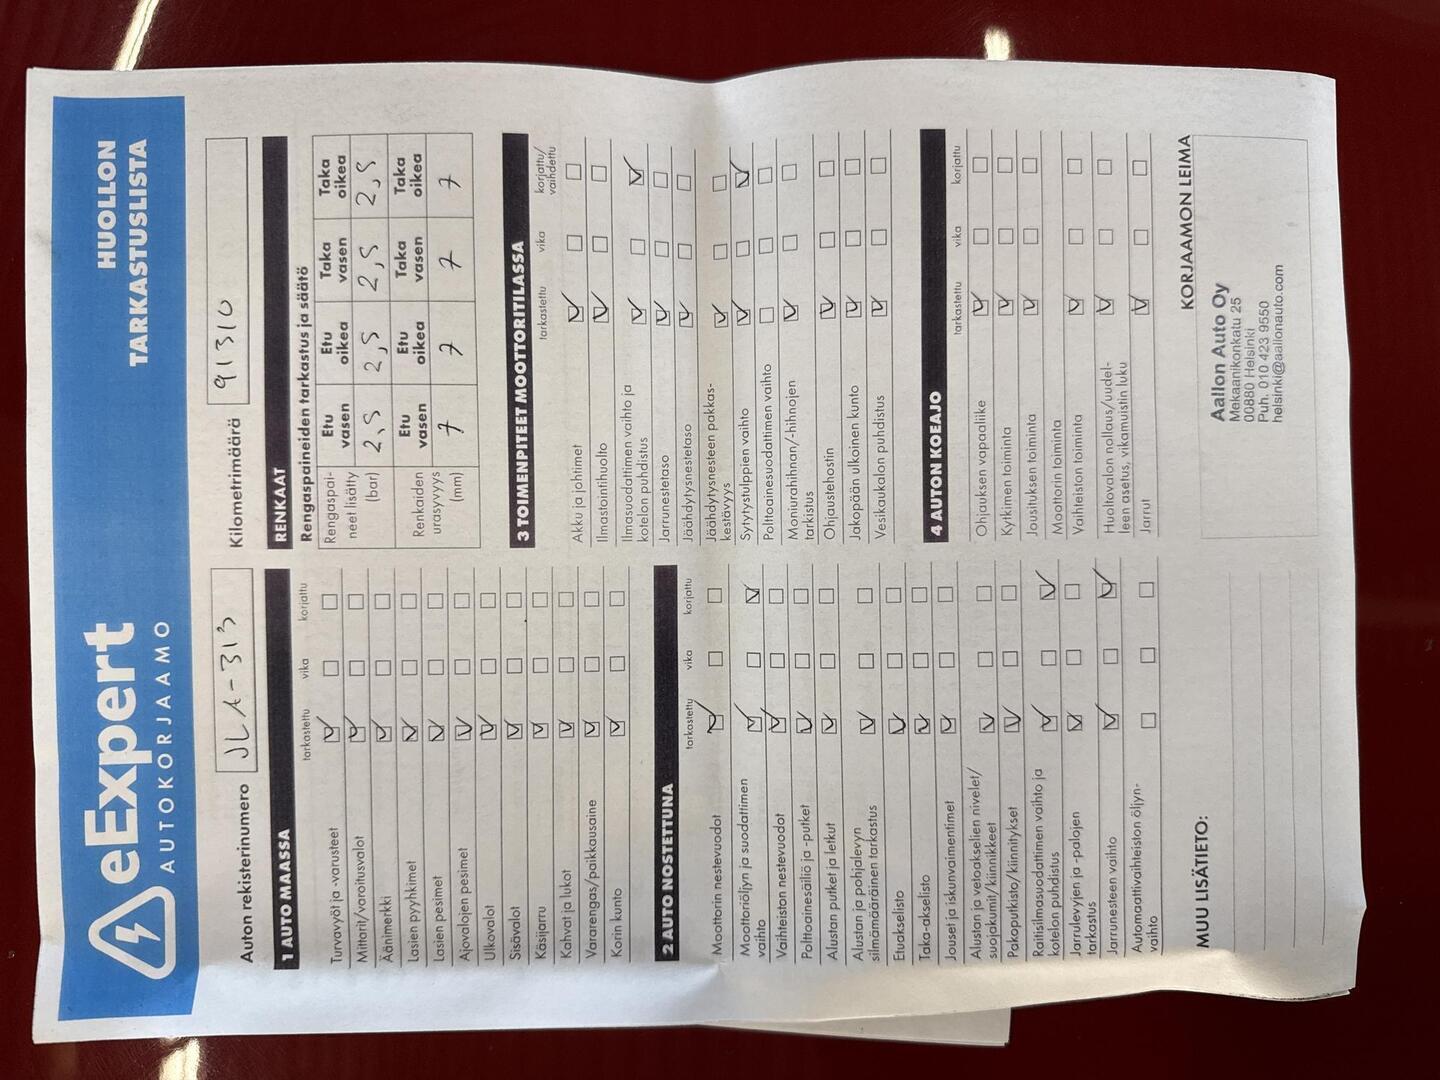 eExpert
AUTOKORJAAMO
HUOLLON
TARKASTUSLISTA
Auton rekisterinumero JLA-313
Kilometrimäärä 91310
1 AUTO MAASSA
tarkastettu vika korjattu
Turvavyöt ja -varusteet
Mittarit/varoitusvalot
Äänimerkki
Lasien pyyhkimet
Lasien pesimet
Ajovalojen pesimet
Ulkovalot
Sisävalot
Käsijarru
Kahvat ja lukot
Vararengas/paikkausaine
Korin kunto
2 AUTO NOSTETTUNA
tarkastettu vika korjattu
Moottorin nestevuodot
Moottoriöljyn ja suodattimen
vaihto
Vaihteiston nestevuodot
Polttoainesäiliö ja -putket
Alustan putket ja letkut
Alustan ja pohjalevyn
silmämääräinen tarkastus
Etuakselisto
Taka-akselisto
Jouset ja iskunvaimentimet
Alustan ja vetoakselien nivelet/
suojakumit/kiinnikkeet
Pakoputkisto/kiinnitykset
Raitisilmasuodattimen vaihto ja
kotelon puhdistus
Jarrulevyjen ja -palojen
tarkastus
Jarrunesteen vaihto
Automaattivaihteiston öljyn-
vaihto
MUU LISÄTIETO:
RENKAAT
Rengaspaineiden tarkastus ja säätö
Rengaspai-
neet lisätty
(bar)
Etu vasen Etu oikea Taka vasen Taka oikea
2,5 2,5 2,5 2,5
Renkaiden
urasyvyys
(mm)
Etu vasen Etu oikea Taka vasen Taka oikea
7 7 7 7
3 TOIMENPITEET MOOTTORITILASSA
tarkastettu vika korjattu/
vaihdettu
Akku ja johtimet
Ilmastointihuolto
Ilmasuodattimen vaihto ja
kotelon puhdistus
Jarrunestetaso
Jäähdytysnestetaso
Jäähdytysnesteen pakkas-
kestävyys
Sytytystulppien vaihto
Polttoainesuodattimen vaihto
Moniurahihnan/-hihnojen
tarkistus
Ohjaustehostin
Jakopään ulkoinen kunto
Vesikaukalon puhdistus
4 AUTON KOEAJO
tarkastettu vika korjattu
Ohjauksen vapaaliike
Kytkimen toiminta
Jousituksen toiminta
Moottorin toiminta
Vaihteiston toiminta
Huoltovalon nollaus/uudel-
leen asetus, vikamuistin luku
Jarrut
KORJAAMON LEIMA
Aallon Auto Oy
Mekaanikonkatu 25
00880 Helsinki
Puh. 010 423 9550
helsinki@aallonauto.com